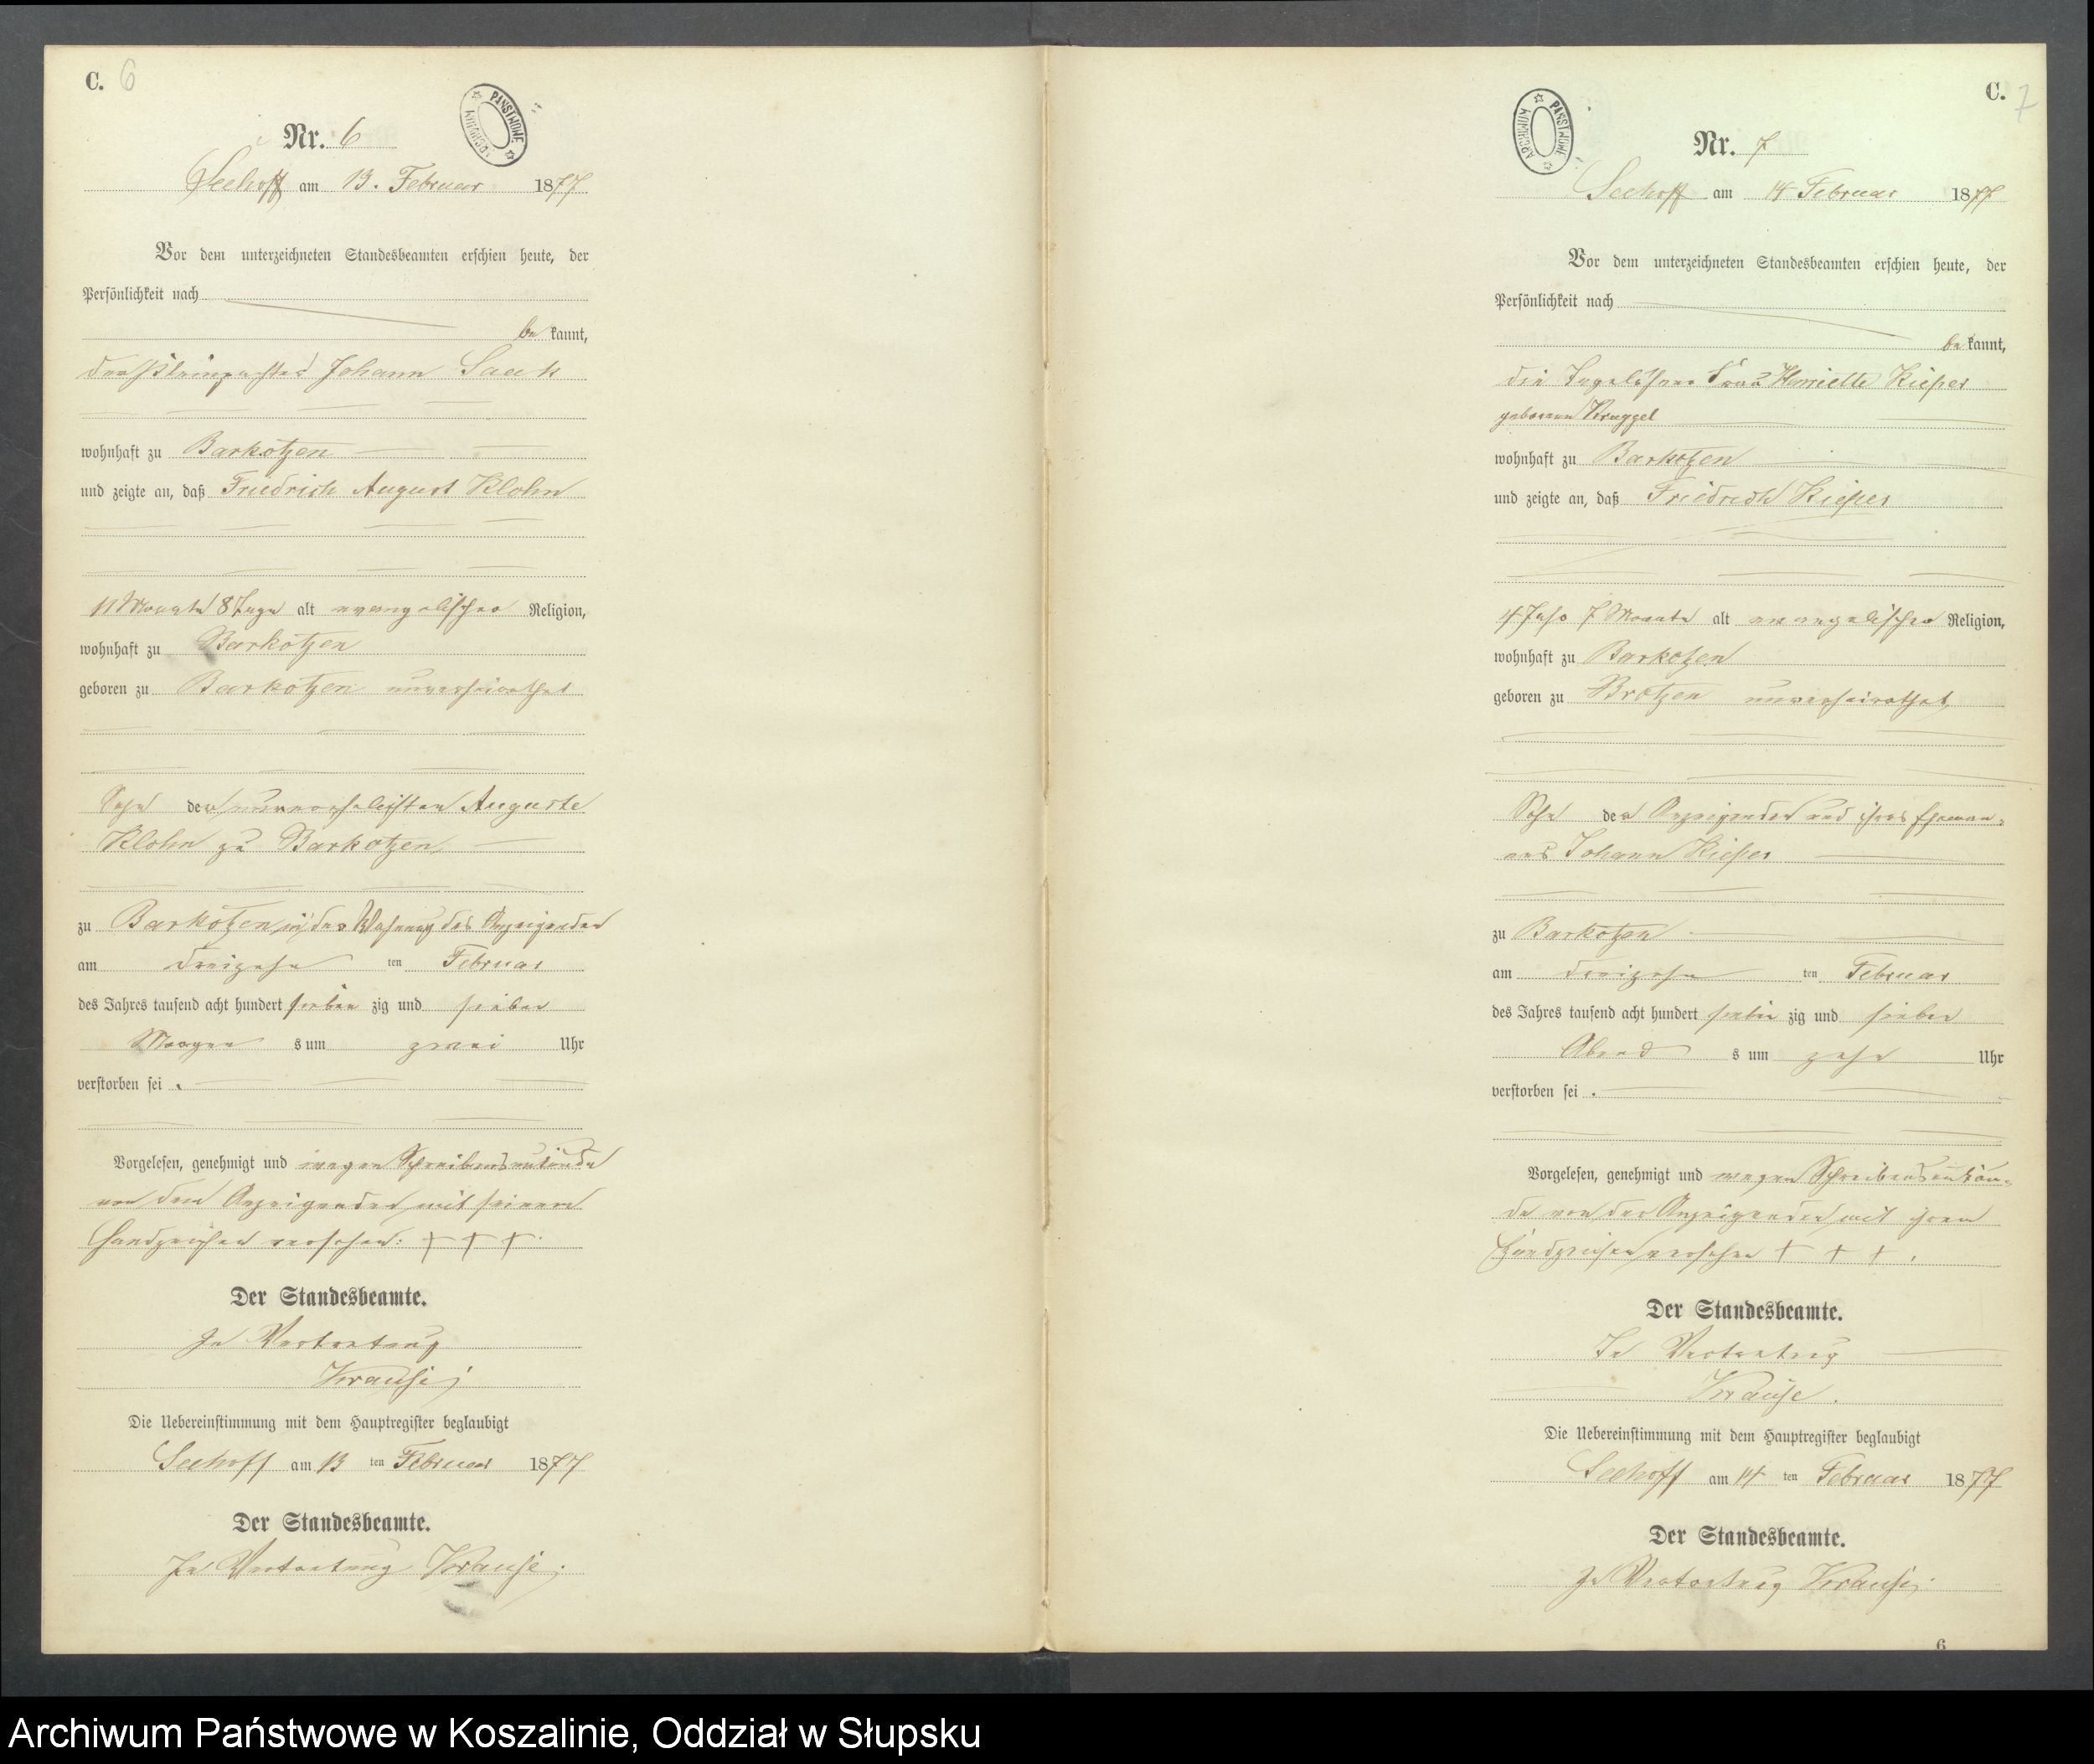 C. 6
ARCHIWUM PAŃSTWOWE
Nr. 6
Seehoff am 13. Februar 1877
Vor dem unterzeichneten Standesbeamten erschien heute, der
Persönlichkeit nach
be kannt,
der Johann Saach
wohnhaft zu Barkotzen
und zeigte an, daß Friedrich August Klohn
11 Monate 8 Tage alt evangelischer Religion,
wohnhaft zu Barkotzen
geboren zu Barkotzen unverheirathet
Sohn der unverehelichten Auguste
Klohn zu Barkotzen
zu Barkotzen in der Wohnung des Anzeigenden
am dreizehn ten Februar
des Jahres tausend acht hundert sieben zig und sieben
Morgen s um zwei Uhr
verstorben sei .
Vorgelesen, genehmigt und wegen Schreibensunkunde
von dem Anzeigenden mit seinem
Handzeichen versehen: + + +.
Der Standesbeamte.
In Vertretung
Krause
Die Uebereinstimmung mit dem Hauptregister beglaubigt
Seehoff am 13 ten Februar 1877
Der Standesbeamte.
In Vertretung Krause.
C. 7
ARCHIWUM PAŃSTWOWE
Nr. 7
Seehoff am 14 Februar 1877
Vor dem unterzeichneten Standesbeamten erschien heute, der
Persönlichkeit nach
be kannt,
die Tagelöhner Frau Henriette Kieper
geborene Kruggel
wohnhaft zu Barkotzen
und zeigte an, daß Friedrich Kieper
4 Jahr 7 Monate alt evangelischer Religion,
wohnhaft zu Barkotzen
geboren zu Brotzen unverheirathet,
Sohn der Anzeigenden und ihres Eheman-
nes Johann Kieper
zu Barkotzen
am dreizehn ten Februar
des Jahres tausend acht hundert sieben zig und sieben
Abend s um zehn Uhr
verstorben sei .
Vorgelesen, genehmigt und wegen Schreibensunkun-
de von der Anzeigenden mit ihrem
Handzeichen versehen + + + .
Der Standesbeamte.
In Vertretung
Krause.
Die Uebereinstimmung mit dem Hauptregister beglaubigt
Seehoff am 14 ten Februar 1877
Der Standesbeamte.
In Vertretung Krause.
6
Archiwum Państwowe w Koszalinie, Oddział w Słupsku